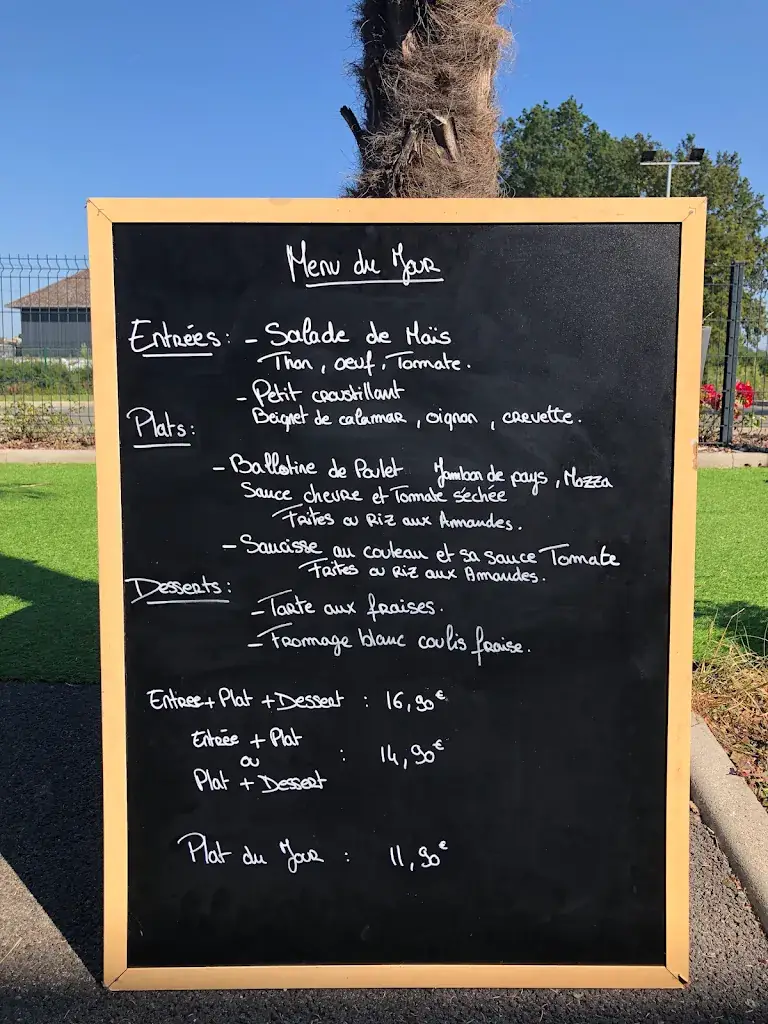 Menu du Jour
Entrées: - Salade de Maïs
Thon, oeuf, Tomate.
- Petit croustillant
Beignet de calamar, oignon, crevette.
Plats:
- Ballotine de Poulet Jambon de pays, Mozza
Sauce chevre et Tomate sechée
Frites ou Riz aux Amandes.
- Saucisse au couteau et sa sauce Tomate
Frites ou Riz aux Amandes.
Desserts:
- Tarte aux fraises.
- Fromage blanc coulis fraise.
Entree + Plat + Dessert : 16,90€
Entrée + Plat
ou : 14,90€
Plat + Dessert
Plat du Jour : 11,90€